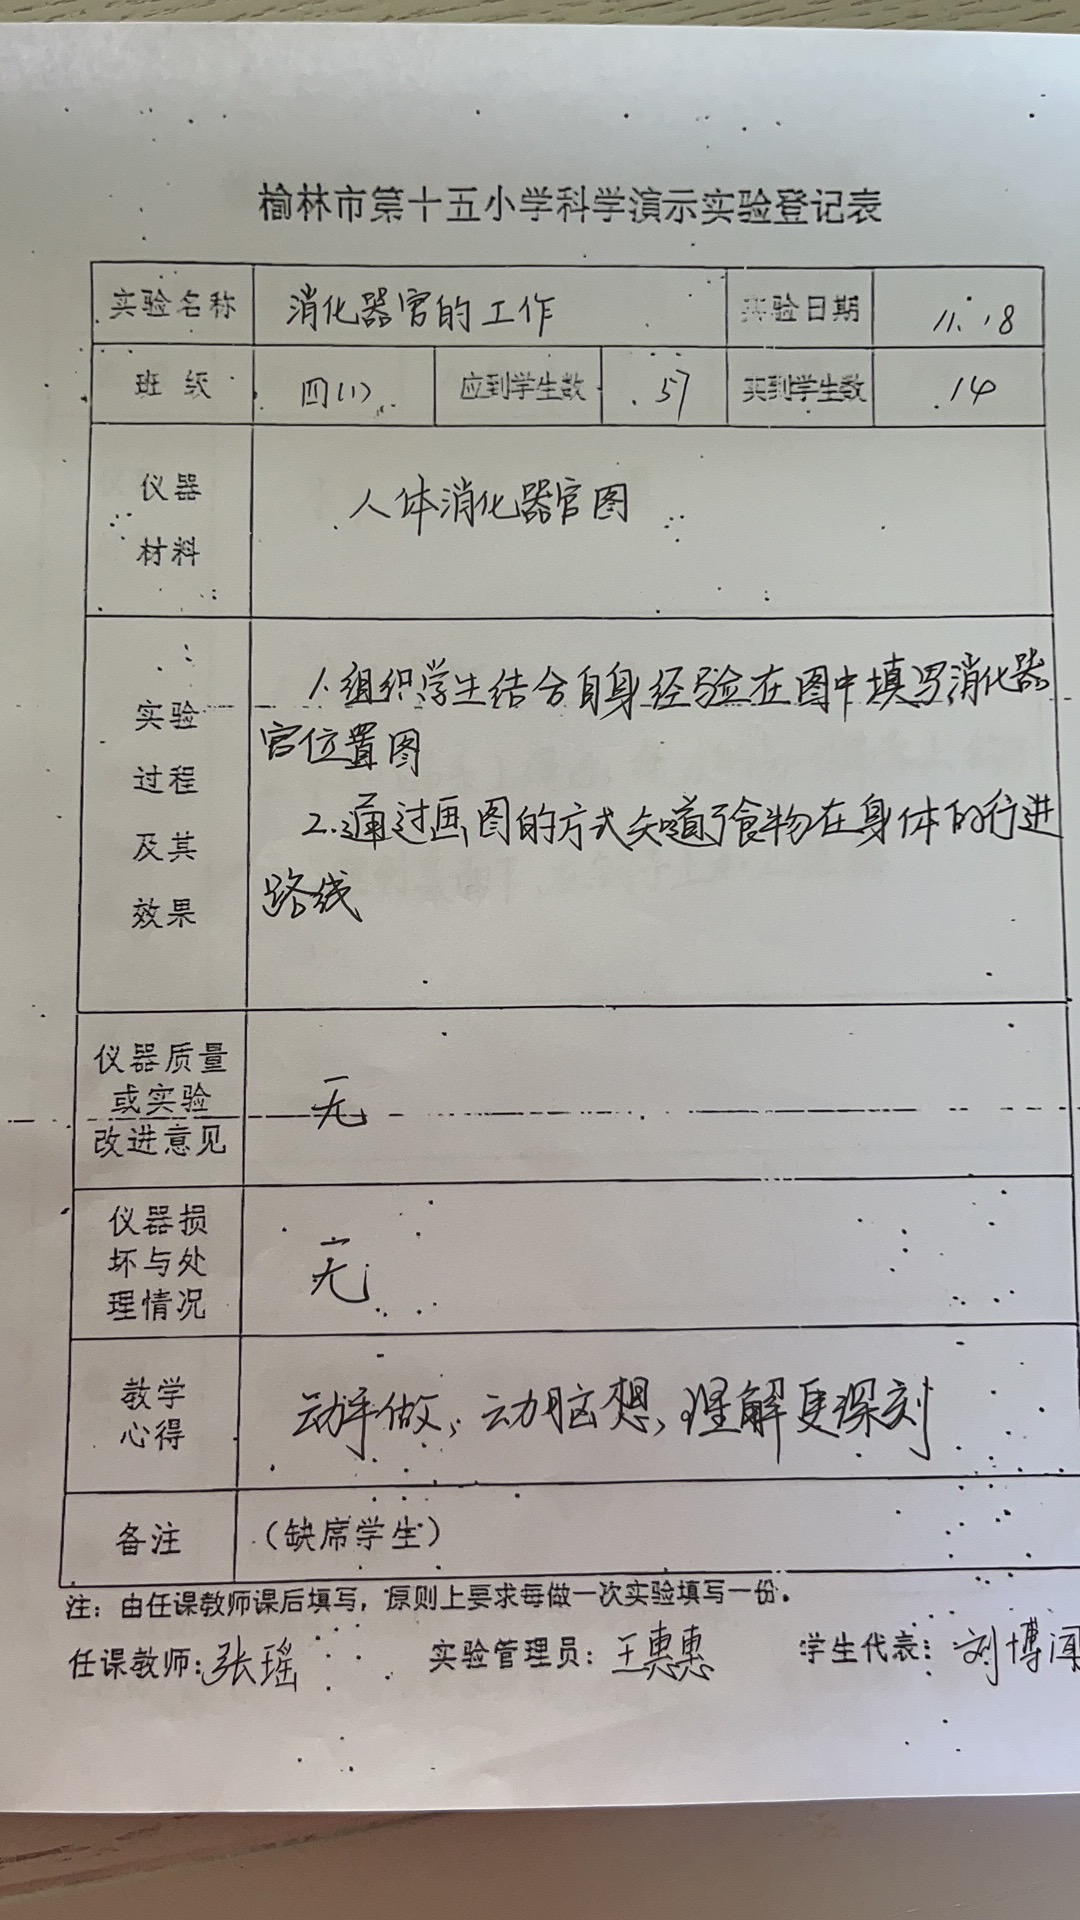 榆林市第十五小学科学演示实验登记表
实验名称 消化器官的工作 实验日期 11.18
班级 四(1) 应到学生数 57 实到学生数 14
仪器
材料
人体消化器官图
实验
过程
及其
效果
1.组织学生结合自身经验在图中填写消化器
官位置图
2.通过画图的方式知道了食物在身体的行进
路线
仪器质量
或实验
改进意见
无
仪器损
坏与处
理情况
无
教学
心得
动手做,动脑想,理解更深刻
备注 (缺席学生)
注:由任课教师课后填写,原则上要求每做一次实验填写一份。
任课教师:张瑶 实验管理员:王惠惠 学生代表:刘博闻